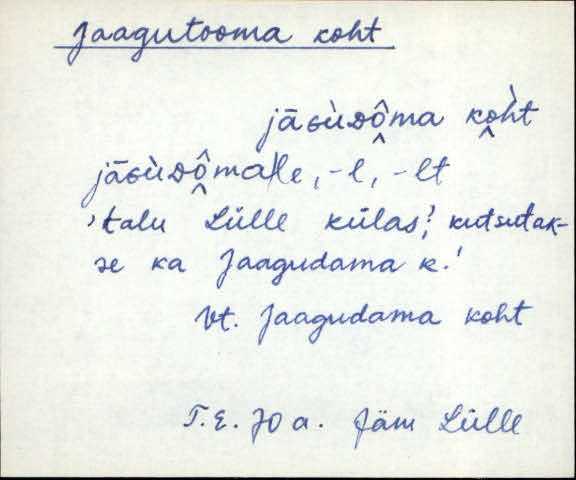 Jaagutooma koht
jāɢùᴅô̭ma ko̭h̀t
jāɢùᴅô̭ma/le, -l, -lt
'talu Lülle külas', kutsutak-
se ka Jaagudama k.'
Vt. Jaagudama koht
T.E. 70 a. Jäm Lülle